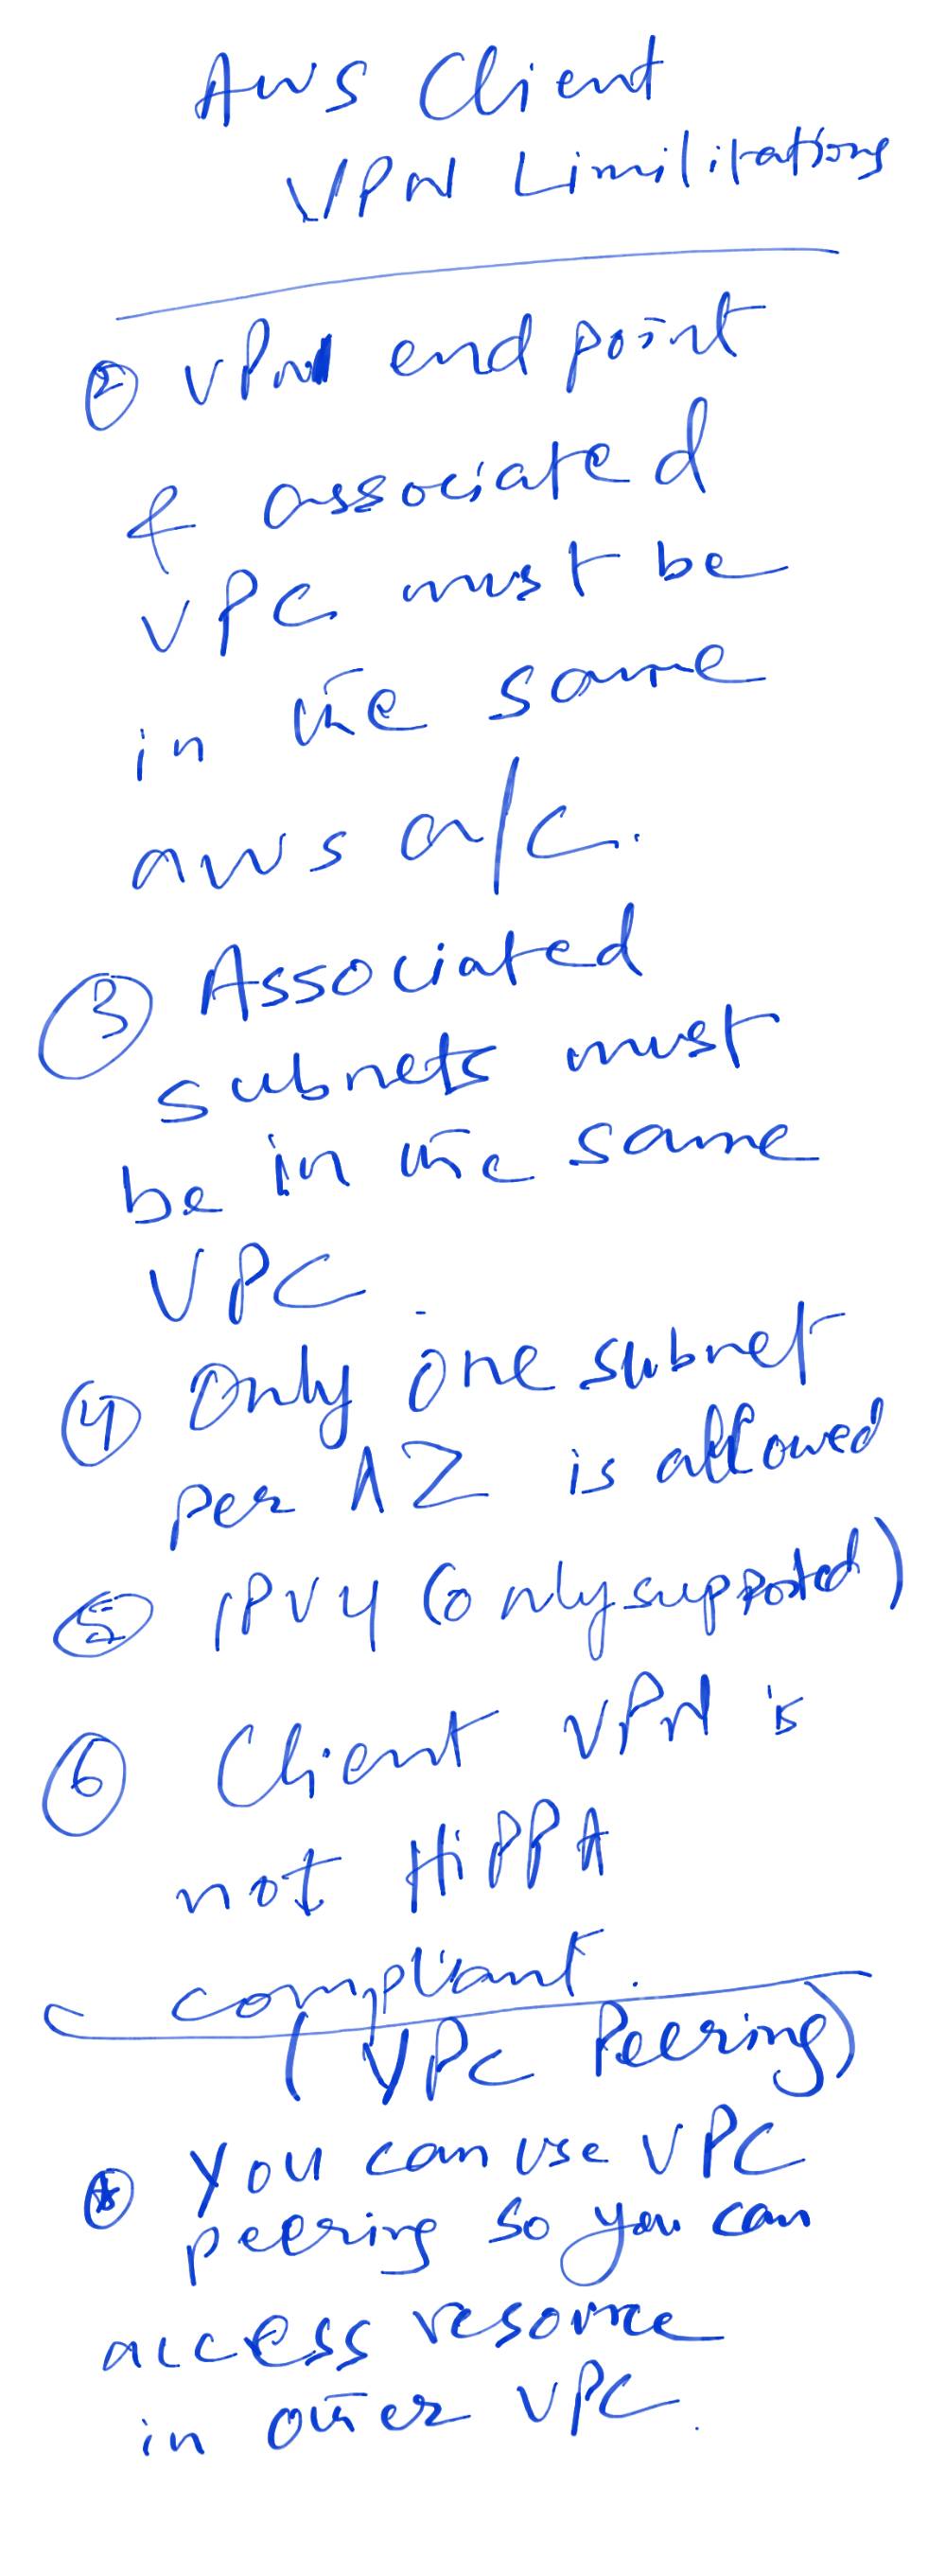 Aws Client
VPN Limilitations
② VPN end point
& associated
VPC must be
in the same
aws a/c.
③ Associated
subnets must
be in the same
VPC.
④ Only one subnet
per AZ is allowed
⑤ IPV4 (only supported)
⑥ Client VPN is
not HiPPA
compliant.
(VPC Peering)
⊛ You can use VPC
peering so you can
access resource
in other VPC.